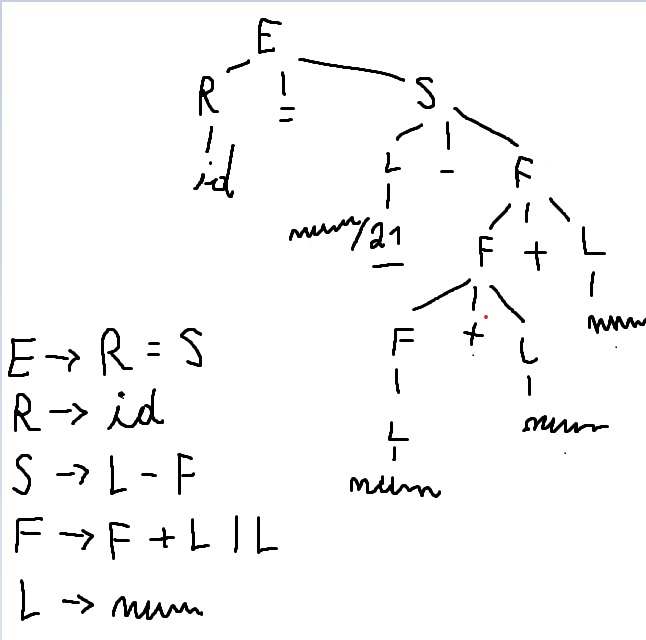 E
R = S
id L - F
num/21 F + L
F + L num
L num
num
E → R = S
R → id
S → L - F
F → F + L | L
L → num